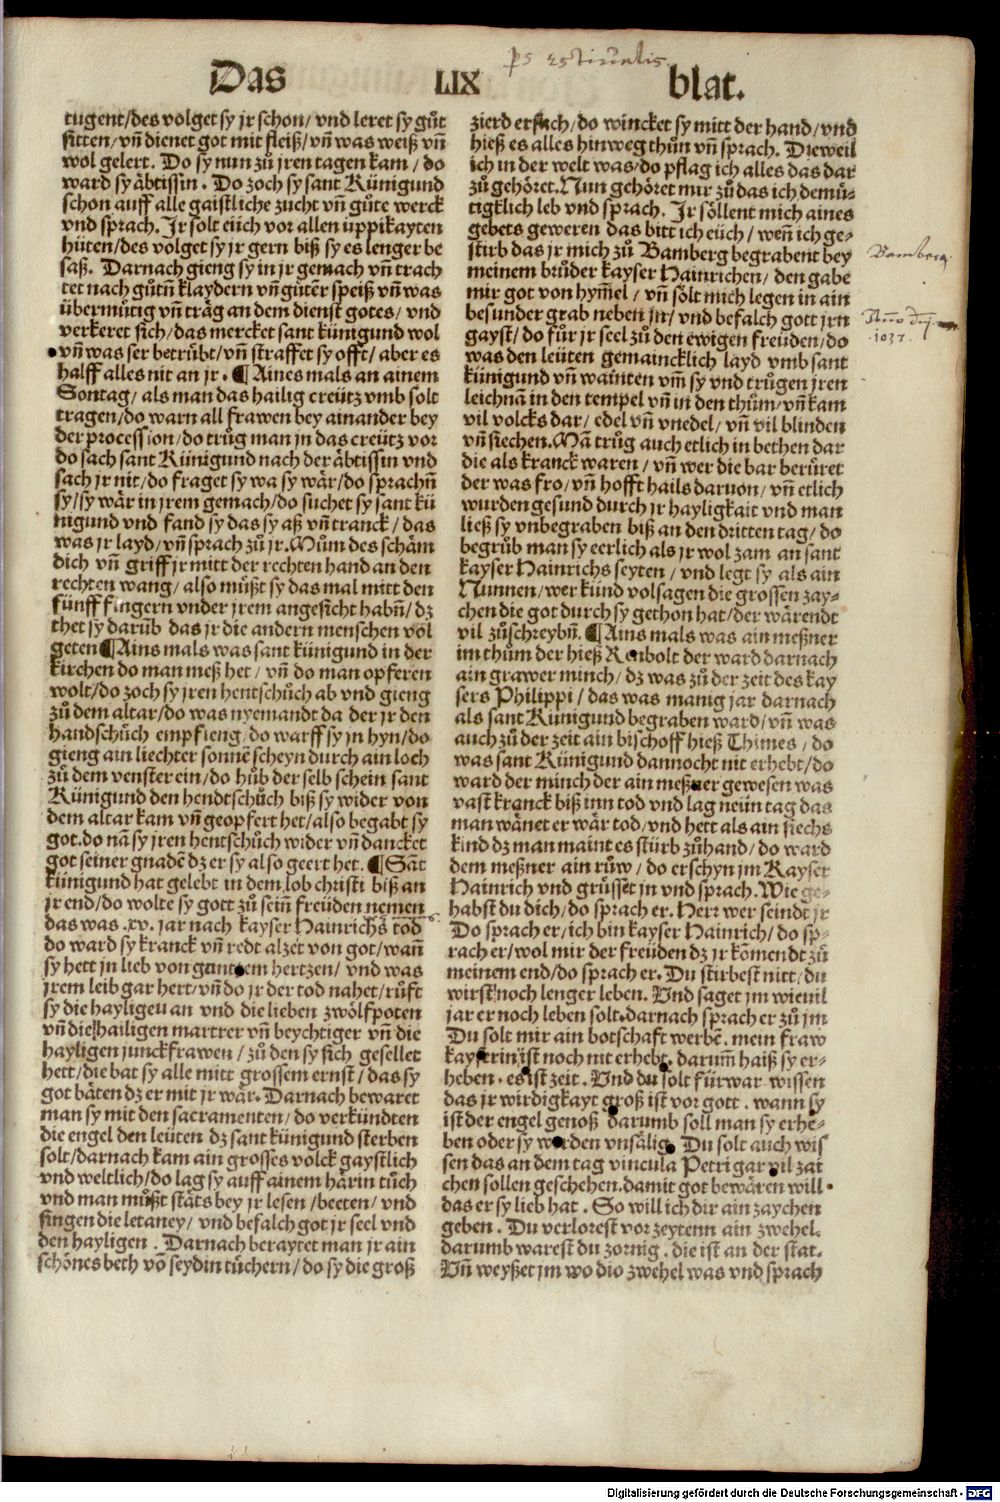 Das LIX blat.
tugent/des volget sy jr schon/ vnd leret sy gůt
sitten/vñ dienet got mit fleiß/vñ was weiß vñ
wol gelert. Do sy nun zů jren tagen kam/ do
ward sy äbtissin. Do zoch sy sant Künigund
schon auff alle gaistliche zucht vñ gůte werck
vnd sprach. Jr solt eüch vor allen üppikayten
hüten/des volget sy jr gern biß sy es lenger be
saß. Darnach gieng sy in jr gemach vñ trach
tet nach gůtñ klaydern vñ gůtẽr speiß vñ was
übermůtig vñ träg an dem dienst gotes/ vnd
verkeret sich/das mercket sant künigund wol
vñ was ser betrübt/vñ straffet sy offt/ aber es
halff alles nit an jr. ¶ Aines mals an ainem
Sontag/ als man das hailig creütz vmb solt
tragen/do warn all frawen bey ainander bey
der procession/do trůg man jn das creütz vor
do sach sant Künigund nach der äbtissin vnd
sach jr nit/do fraget sy wa sy wär/do sprachñ
sy/sy wär in jrem gemach/do suchet sy sant kü
nigund vnd fand sy das sy aß vñ tranck/ das
was jr layd/vñ sprach zů jr. Mům des schäm
dich vñ griff jr mitt der rechten hand an den
rechten wang/ also můßt sy das mal mitt den
fünff fingern vnder jrem angesicht habñ/ dz
thet sy darüb das jr die andern menschen vol
geten ¶ Ains mals was sant künigund in der
kirchen do man meß het/ vñ do man opferen
wolt/do zoch sy jren hentschůch ab vnd gieng
zů dem altar/do was nyemandt da der jr den
handschůch empfieng/do warff sy jn hyn/do
gieng ain liechter sonnẽ scheyn durch ain loch
zů dem venster ein/do hůb der selb schein sant
Künigund den hendtschůch biß sy wider von
dem altar kam vñ geopfert het/also begabt sy
got. do nã sy jren hentschůch wider vñ dancket
got seiner gnadẽ dz er sy also geert het. ¶ Sãt
künigund hat gelebt in dem lob christi biß an
jr end/do wolte sy gott zů seinñ freüden nemen
das was .xv. jar nach kayser Hainrichs tod
do ward sy kranck vñ redt alzeẗ von got/wañ
sy hett jn lieb von gantzem hertzen/ vnd was
jrem leib gar hert/vñ do jr der tod nahet/růft
sy die hayligen an vnd die lieben zwölfpoten
vñ die hailigen martrer vñ beychtiger vñ die
hayligen junckfrawen/ zů den sy sich gesellet
hett/die bat sy alle mitt grossem ernst/das sy
got bäten dz er mit jr wär. Darnach bewaret
man sy mit den sacramenten/do verkündten
die engel den leüten dz sant künigund sterben
solt/darnach kam ain grosses volck gaystlich
vnd weltlich/do lag sy auff ainem härin tůch
vnd man můßt stäts bey jr lesen/beeten/vnd
singen die letaney/ vnd befalch got jr seel vnd
den hayligen. Darnach beraytet man jr ain
schönes beth võ seydin tüchern/do sy die groß
zierd ersach/do wincket sy mitt der hand/vnd
hieß es alles hinweg thůn vñ sprach. Dieweil
ich in der welt was/do pflag ich alles das dar
zů gehöret. Nun gehöret mir zů das ich demü-
tigklich leb vnd sprach. Jr söllent mich aines
gebets geweren das bitt ich eüch/ weñ ich ge-
stirb das jr mich zů Bamberg begrabent bey
meinem brůder kayser Hainrichen/ den gabe
mir got von hym̃el/ vñ sölt mich legen in ain
besunder grab neben jn/ vnd befalch gott jrn
gayst/ do fůr jr seel zů den ewigen freüden/do
was den leüten gemaincklich layd vmb sant
künigund vñ wainten vm̃ sy vnd trůgen jren
leichnã in den tempel vñ in den thům/vñ kam
vil volcks dar/ edel vñ vnedel/ vñ vil blinden
vñ siechen. Mã trůg auch etlich in bethen dar
die als kranck waren/ vñ wer die bar berůret
der was fro/ vñ hofft hails daruon/ vñ etlich
wurden gesund durch jr hayligkait vnd man
ließ sy vnbegraben biß an den dritten tag/ do
begrůb man sy eerlich als jr wol zam an sant
kayser Hainrichs seyten/ vnd legt sy als ain
Nunnen/wer künd volsagen die grossen zay-
chen die got durch sy gethon hat/der wärendt
vil zůschreybñ. ¶ Ains mals was ain meßner
im thům der hieß Reibolt der ward darnach
ain grawer minch/ dz was zů der zeit des kay
sers Philippi/ das was manig jar darnach
als sant Künigund begraben ward/vñ was
auch zů der zeit ain bischoff hieß Thimes/ do
was sant Künigund dannocht nit erhebt/do
ward der minch der ain meßner gewesen was
vast kranck biß inn tod vnd lag neün tag das
man wänet er wär tod/vnd hett als ain siechs
kind dz man maint es stürb zůhand/ do ward
dem meßner ain růw/ do erschyn jm Kayser
Hainrich vnd grůsset jn vnd sprach. Wie ge-
habst du dich/do sprach er. Herr wer seindt jr
Do sprach er/ich bin kayser Hainrich/do sp-
rach er/wol mir der freüden dz jr kõmendt zů
meinem end/do sprach er. Du stirbest nitt/du
wirst noch lenger leben. Vnd saget jm wieuil
jar er noch leben solt. darnach sprach er zů jm
Du solt mir ain botschaft werbẽ. mein fraw
kayserin ist noch nit erhebt. darum̃ haiß sy er-
heben. es ist zeit. Vnd du solt fürwar wissen
das jr wirdigkayt groß ist vor gott. wann sy
ist der engel genoß darumb soll man sy erhe-
ben oder sy werden vnsälig. Du solt auch wis
sen das an dem tag vincula Petri gar vil zai
chen sollen geschehen. damit got bewären will
das er sy lieb hat. So will ich dir ain zaychen
geben. Du verlorest vor zeytenn ain zwehel.
darumb warest du zornig. die ist an der stat.
Vñ weyßet jm wo die zwehel was vnd sprach
Bamberg
1037.
Digitalisierung gefördert durch die Deutsche Forschungsgemeinschaft - DFG